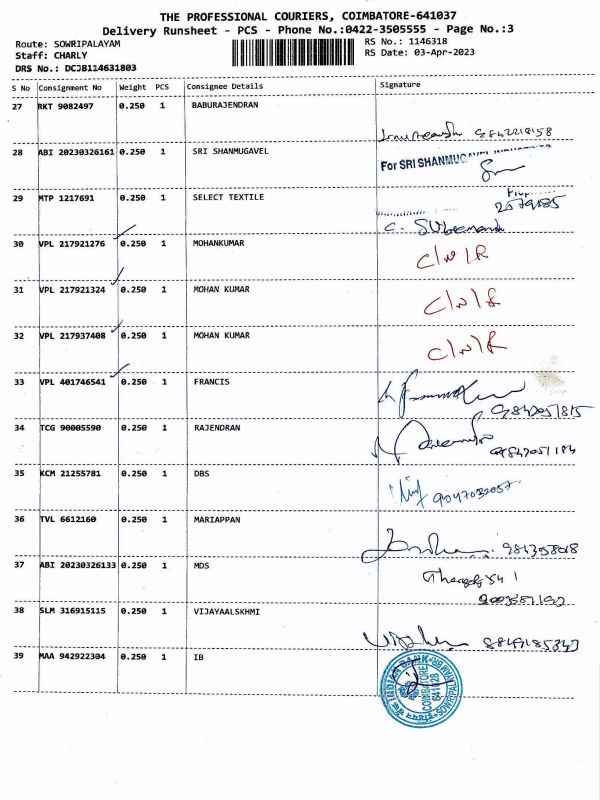 THE PROFESSIONAL COURIERS, COIMBATORE-641037
Delivery Runsheet - PCS - Phone No.:0422-3505555 - Page No.:3
Route: SOWRIPALAYAM RS No.: 1146318
Staff: CHARLY RS Date: 03-Apr-2023
DRS No.: DCJB114631803
S No Consignment No Weight PCS Consignee Details Signature
27 RKT 9082497 0.250 1 BABURAJENDRAN
28 ABI 20230326161 0.250 1 SRI SHANMUGAVEL
For SRI SHANMUGAVEL
29 MTP 1217691 0.250 1 SELECT TEXTILE
30 VPL 217921276 0.250 1 MOHANKUMAR
C/N/R
31 VPL 217921324 0.250 1 MOHAN KUMAR
C/N/R
32 VPL 217937408 0.250 1 MOHAN KUMAR
C/N/R
33 VPL 401746541 0.250 1 FRANCIS
34 TCG 90005590 0.250 1 RAJENDRAN
35 KCM 21255781 0.250 1 DBS
36 TVL 6612160 0.250 1 MARIAPPAN
37 ABI 20230326133 0.250 1 MDS
38 SLM 316915115 0.250 1 VIJAYAALSKHMI
39 MAA 942922304 0.250 1 IB
INDIAN BANK
COIMBATORE
641028